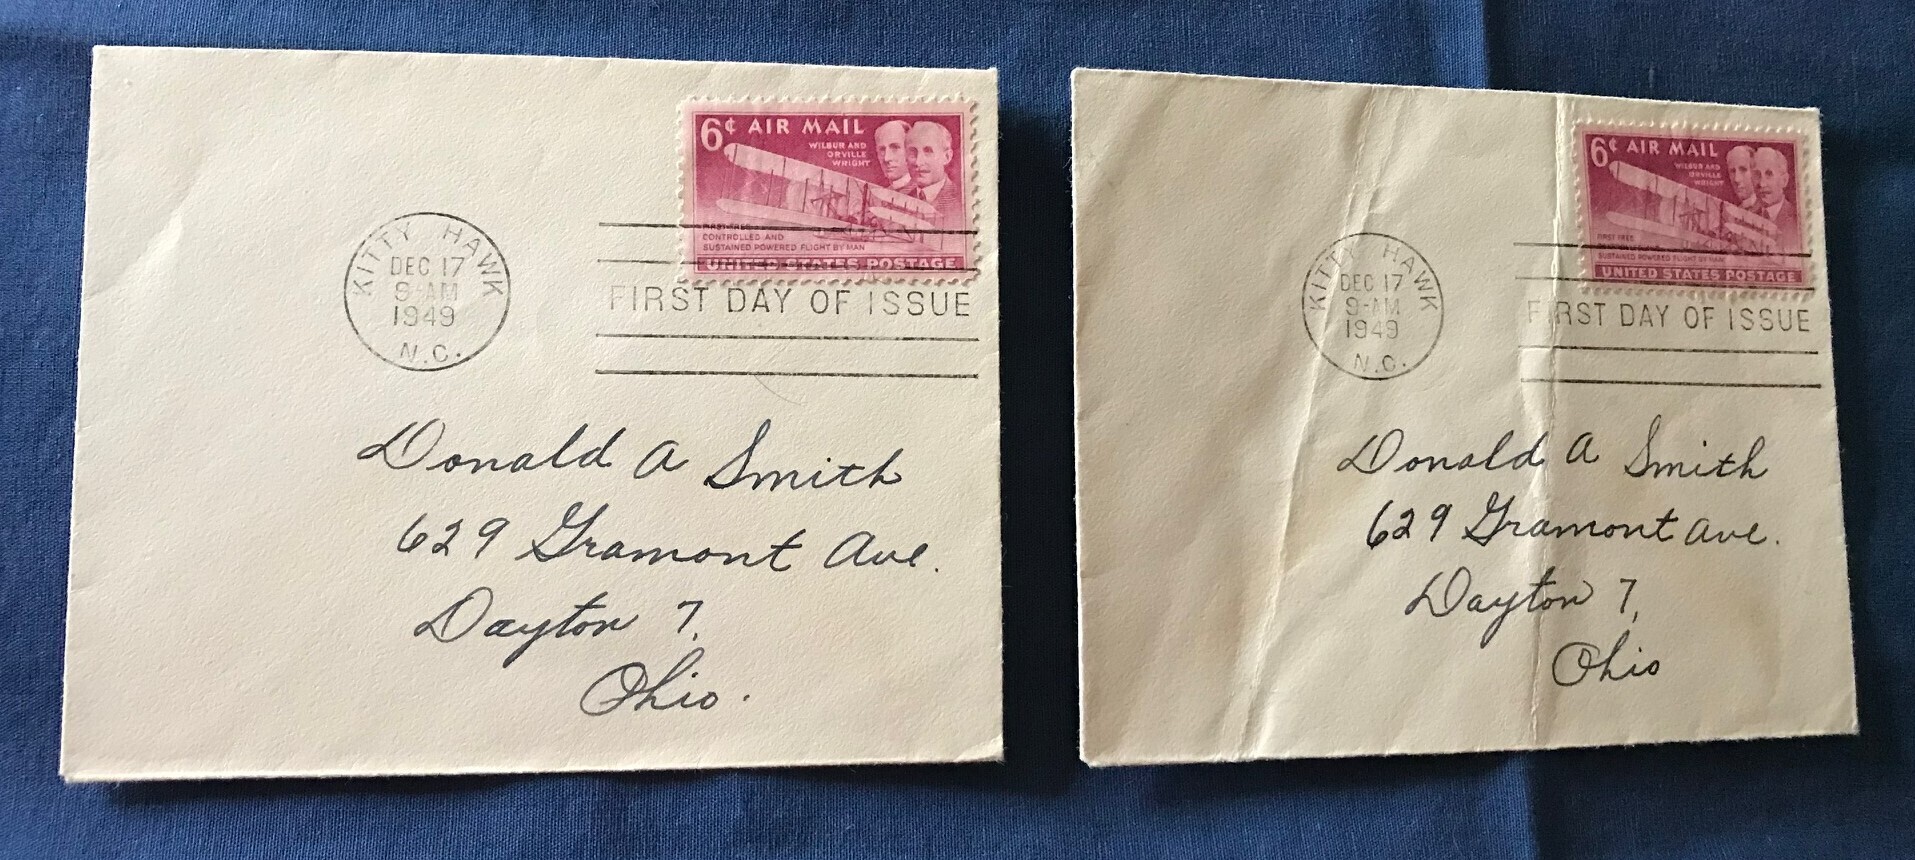 6¢ AIR MAIL
WILBUR AND
ORVILLE
WRIGHT
FIRST FREE
CONTROLLED AND
SUSTAINED POWERED FLIGHT BY MAN
UNITED STATES POSTAGE
KITTY HAWK
DEC 17
9-AM
1949
N.C.
FIRST DAY OF ISSUE
Donald A Smith
629 Gramont Ave.
Dayton 7,
Ohio.
6¢ AIR MAIL
WILBUR AND
ORVILLE
WRIGHT
FIRST FREE
SUSTAINED POWERED FLIGHT BY MAN
UNITED STATES POSTAGE
KITTY HAWK
DEC 17
9-AM
1949
N.C.
FIRST DAY OF ISSUE
Donald A Smith
629 Gramont Ave.
Dayton 7,
Ohio